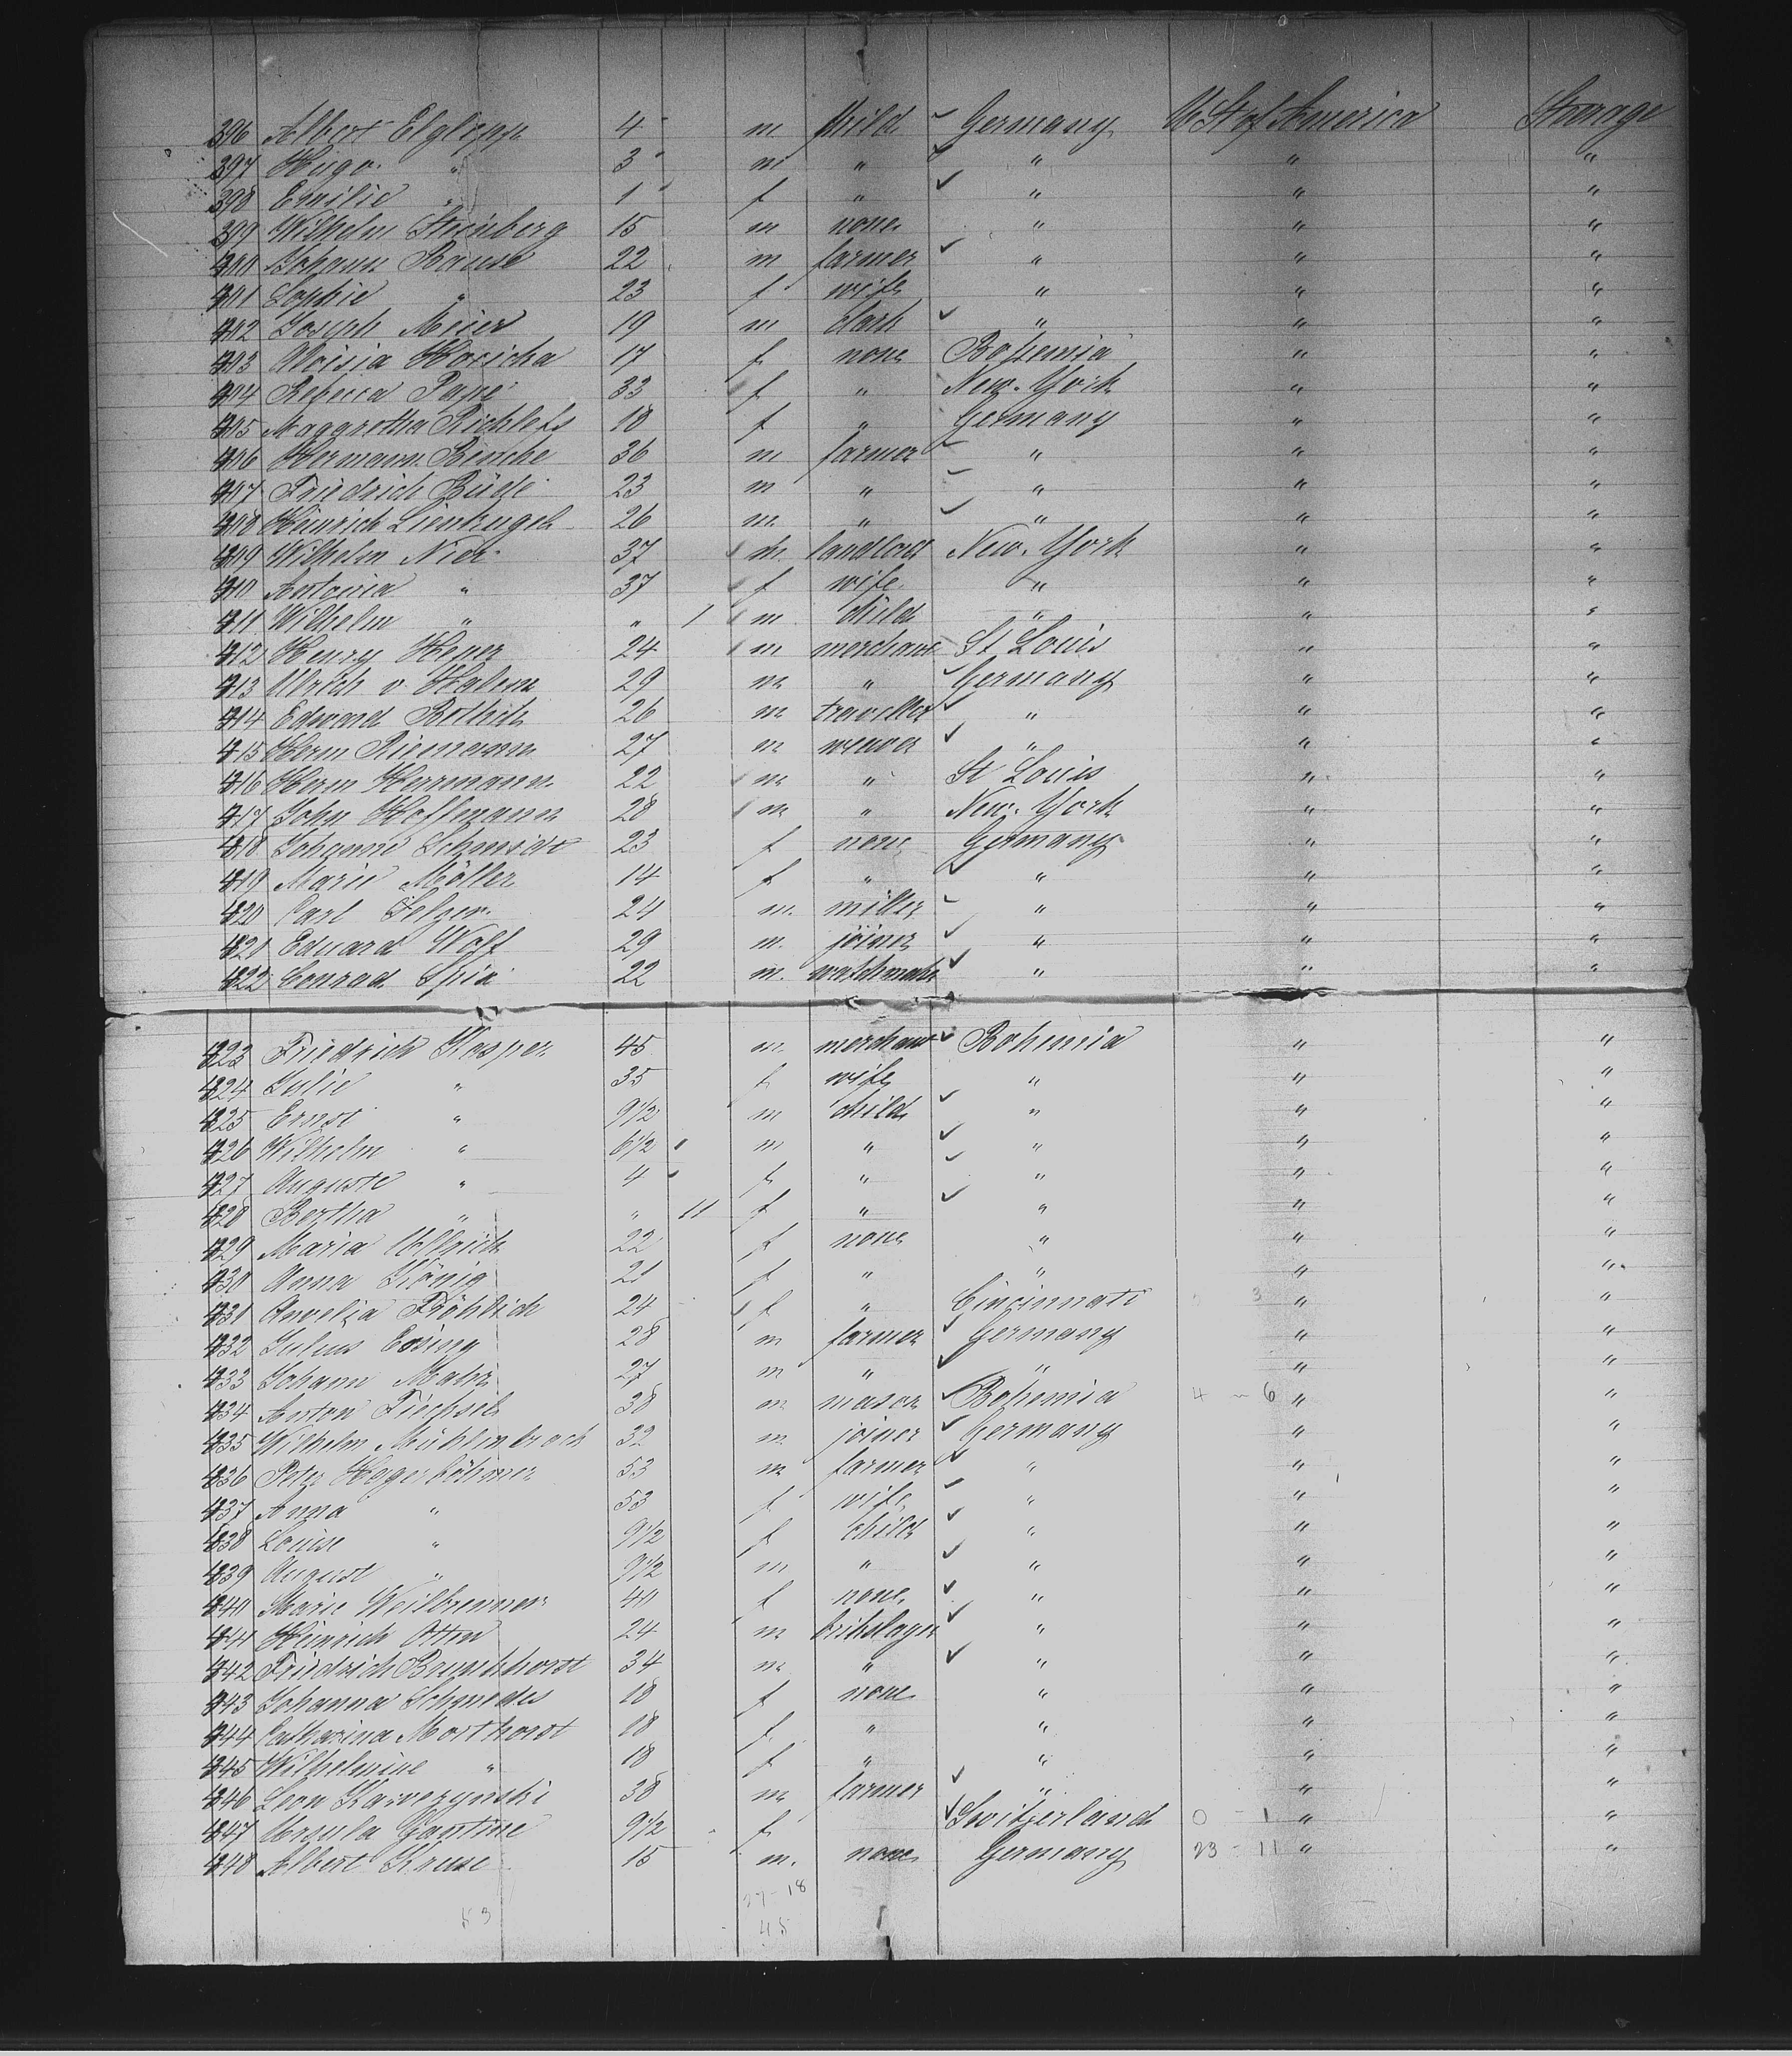 396 Albert Elglepp 4 m child Germany U St of America Steerage
397 Hugo " 3 m " " " "
398 Emilie " 1 f " " " "
399 Wilhelm Steinberg 15 m none " " "
400 Johann Bause 22 m farmer " " "
401 Sophie " 23 f wife " " "
402 Joseph Meier 19 m clerk " " "
403 Aloisia Horicha 17 f none Bohemia " "
404 Rebecca Pape 33 f " New-York " "
405 Maggretha Richlefs 18 f " Germany " "
406 Hermann Benche 36 m farmer " " "
407 Friedrich Büdge 23 m " " " "
408 Heinrich Lienkugel 26 m " " " "
409 Wilhelm Nier 37 m landlord New-York " "
410 Antonia " 37 f wife " " "
411 Wilhelm " " 1 m child " " "
412 Henry Heyer 24 m merchant St Louis " "
413 Ulrich v Halem 29 m " Germany " "
414 Edward Bollich 26 m traveller " " "
415 Herm Riemann 27 m weaver " " "
416 Herm Herrmann 22 m " St Louis " "
417 John Hoffmann 28 m " New-York " "
418 Johanne Schmidt 23 f none Germany " "
419 Marie Möller 14 f " " " "
420 Carl Selzer 24 m miller " " "
421 Eduard Wolf 29 m joiner " " "
422 Conrad Spia 22 m watchmaker " " "
423 Friedrich Kasper 45 m merchant Bohemia " "
424 Julie " 35 f wife " " "
425 Ernst " 9 1/2 m child " " "
426 Wilhelm " 6 1/2 m " " " "
427 Auguste " 4 f " " " "
428 Bertha " " 11 f " " " "
429 Maria Ullrich 22 f none " " "
430 Anna König 21 f " " " "
431 Amelia Fröhlich 24 f " Cincinnati 3 " "
432 Julius Essing 28 m farmer Germany " "
433 Johann Mahr 27 m " " " "
434 Anton Fiechsel 38 m mason Bohemia 4 - 6 " "
435 Wilhelm Mühlenbrock 32 m joiner Germany " "
436 Peter Hegerböhmer 53 m farmer " " "
437 Anna " 53 f wife " " "
438 Louise " 9 1/2 f child " " "
439 August " 9 1/2 m " " " "
440 Marie Weilbrenner 40 f none " " "
441 Heinrich Otten 24 m brikslayer " " "
442 Friedrich Brunkhorst 34 m " " " "
443 Johanna Schmedes 18 f none " " "
444 Catharina Morthorst 18 f " " " "
445 Wilhelmine " 18 f " " " "
446 Leon Karvezynski 38 m farmer " " "
447 Ursula Gantine 9 1/2 f Switzerland 0 - 1 " "
448 Albert Kruse 15 m. none Germany 23 - 11 " "
37 - 18
53 45